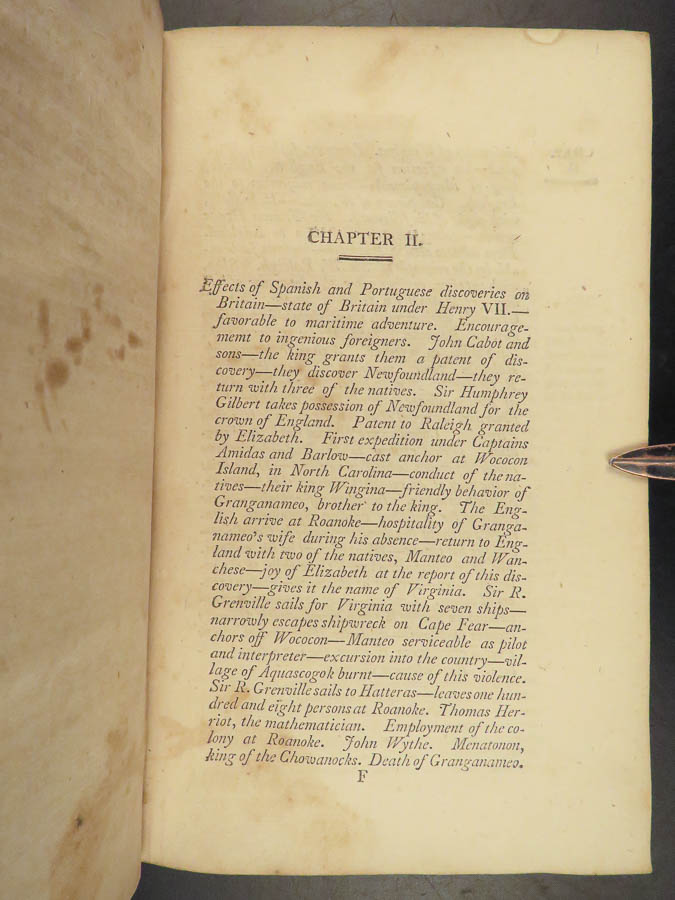 CHAPTER II.
Effects of Spanish and Portuguese discoveries on
Britain—state of Britain under Henry VII.—
favorable to maritime adventure. Encourage-
memt to ingenious foreigners. John Cabot and
sons—the king grants them a patent of dis-
covery—they discover Newfoundland—they re-
turn with three of the natives. Sir Humphrey
Gilbert takes possession of Newfoundland for the
crown of England. Patent to Raleigh granted
by Elizabeth. First expedition under Captains
Amidas and Barlow—cast anchor at Wococon
Island, in North Carolina—conduct of the na-
tives—their king Wingina—friendly behavior of
Granganameo, brother to the king. The Eng-
lish arrive at Roanoke—hospitality of Granga-
nameo's wife during his absence—return to Eng-
land with two of the natives, Manteo and Wan-
chese—joy of Elizabeth at the report of this dis-
covery—gives it the name of Virginia. Sir R.
Grenville sails for Virginia with seven ships—
narrowly escapes shipwreck on Cape Fear—an-
chors off Wococon—Manteo serviceable as pilot
and interpreter—excursion into the country—vil-
lage of Aquascogok burnt—cause of this violence.
Sir R. Grenville sails to Hatteras—leaves one hun-
dred and eight persons at Roanoke. Thomas Her-
riot, the mathematician. Employment of the co-
lony at Roanoke. John Wythe. Menatonon,
king of the Chowanocks. Death of Granganameo.
F